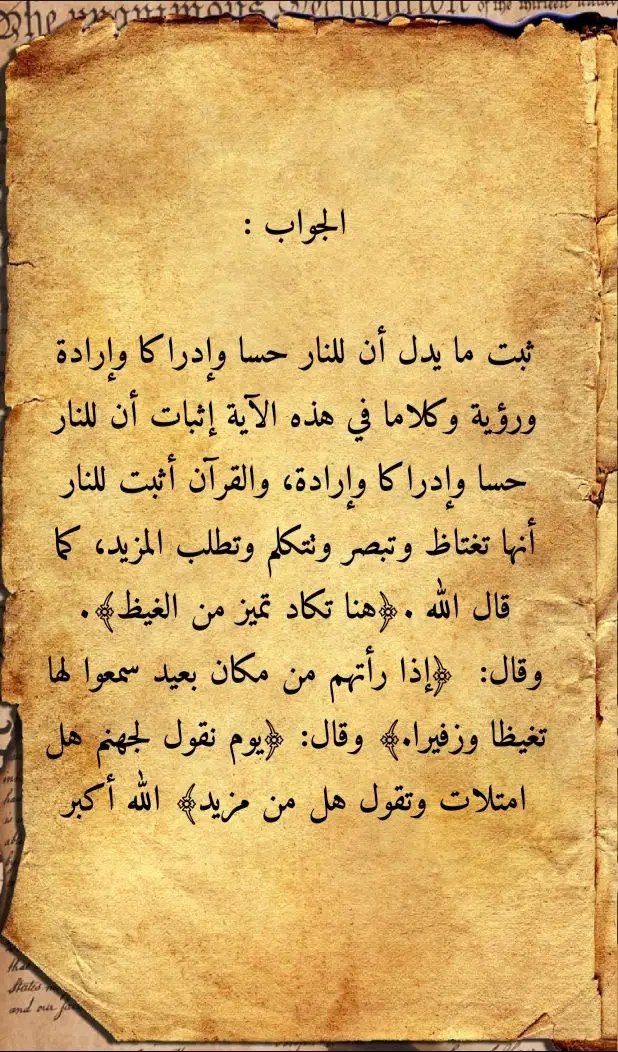 The unanimous Declaration of the thirteen united
الجواب :
ثبت ما يدل أن للنار حسا وإدراكا وإرادة
ورؤية وكلاما في هذه الآية إثبات أن للنار
حسا وإدراكا وإرادة، والقرآن أثبت للنار
أنها تغتاظ وتبصر وتتكلم وتطلب المزيد، كما
قال الله .﴿هنا تكاد تميز من الغيظ﴾.
وقال: ﴿إذا رأتهم من مكان بعيد سمعوا لها
تغيظا وزفيرا.﴾ وقال: ﴿يوم نقول لجهنم هل
امتلات وتقول هل من مزيد﴾ الله أكبر
States
and our